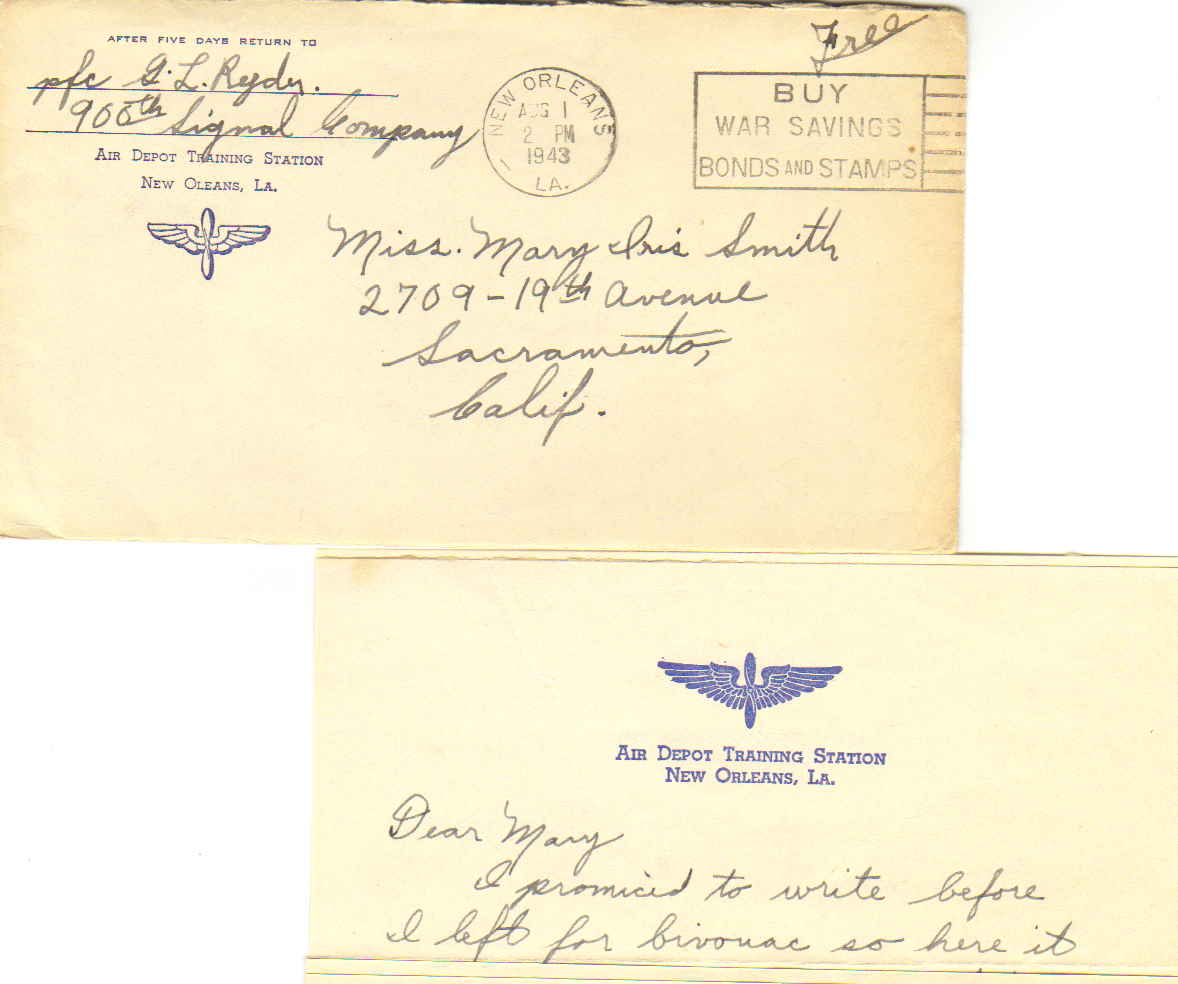 AFTER FIVE DAYS RETURN TO
pfc G. L. Ryder.
900th Signal Company
AIR DEPOT TRAINING STATION
NEW OLEANS, LA.
NEW ORLEANS
AUG 1
2 PM
1943
LA.
Free
BUY
WAR SAVINGS
BONDS AND STAMPS
Miss. Mary Iris Smith
2709 - 19th Avenue
Sacramento,
Calif.
AIR DEPOT TRAINING STATION
NEW ORLEANS, LA.
Dear Mary
I promiced to write before
I left for bivouac so here it